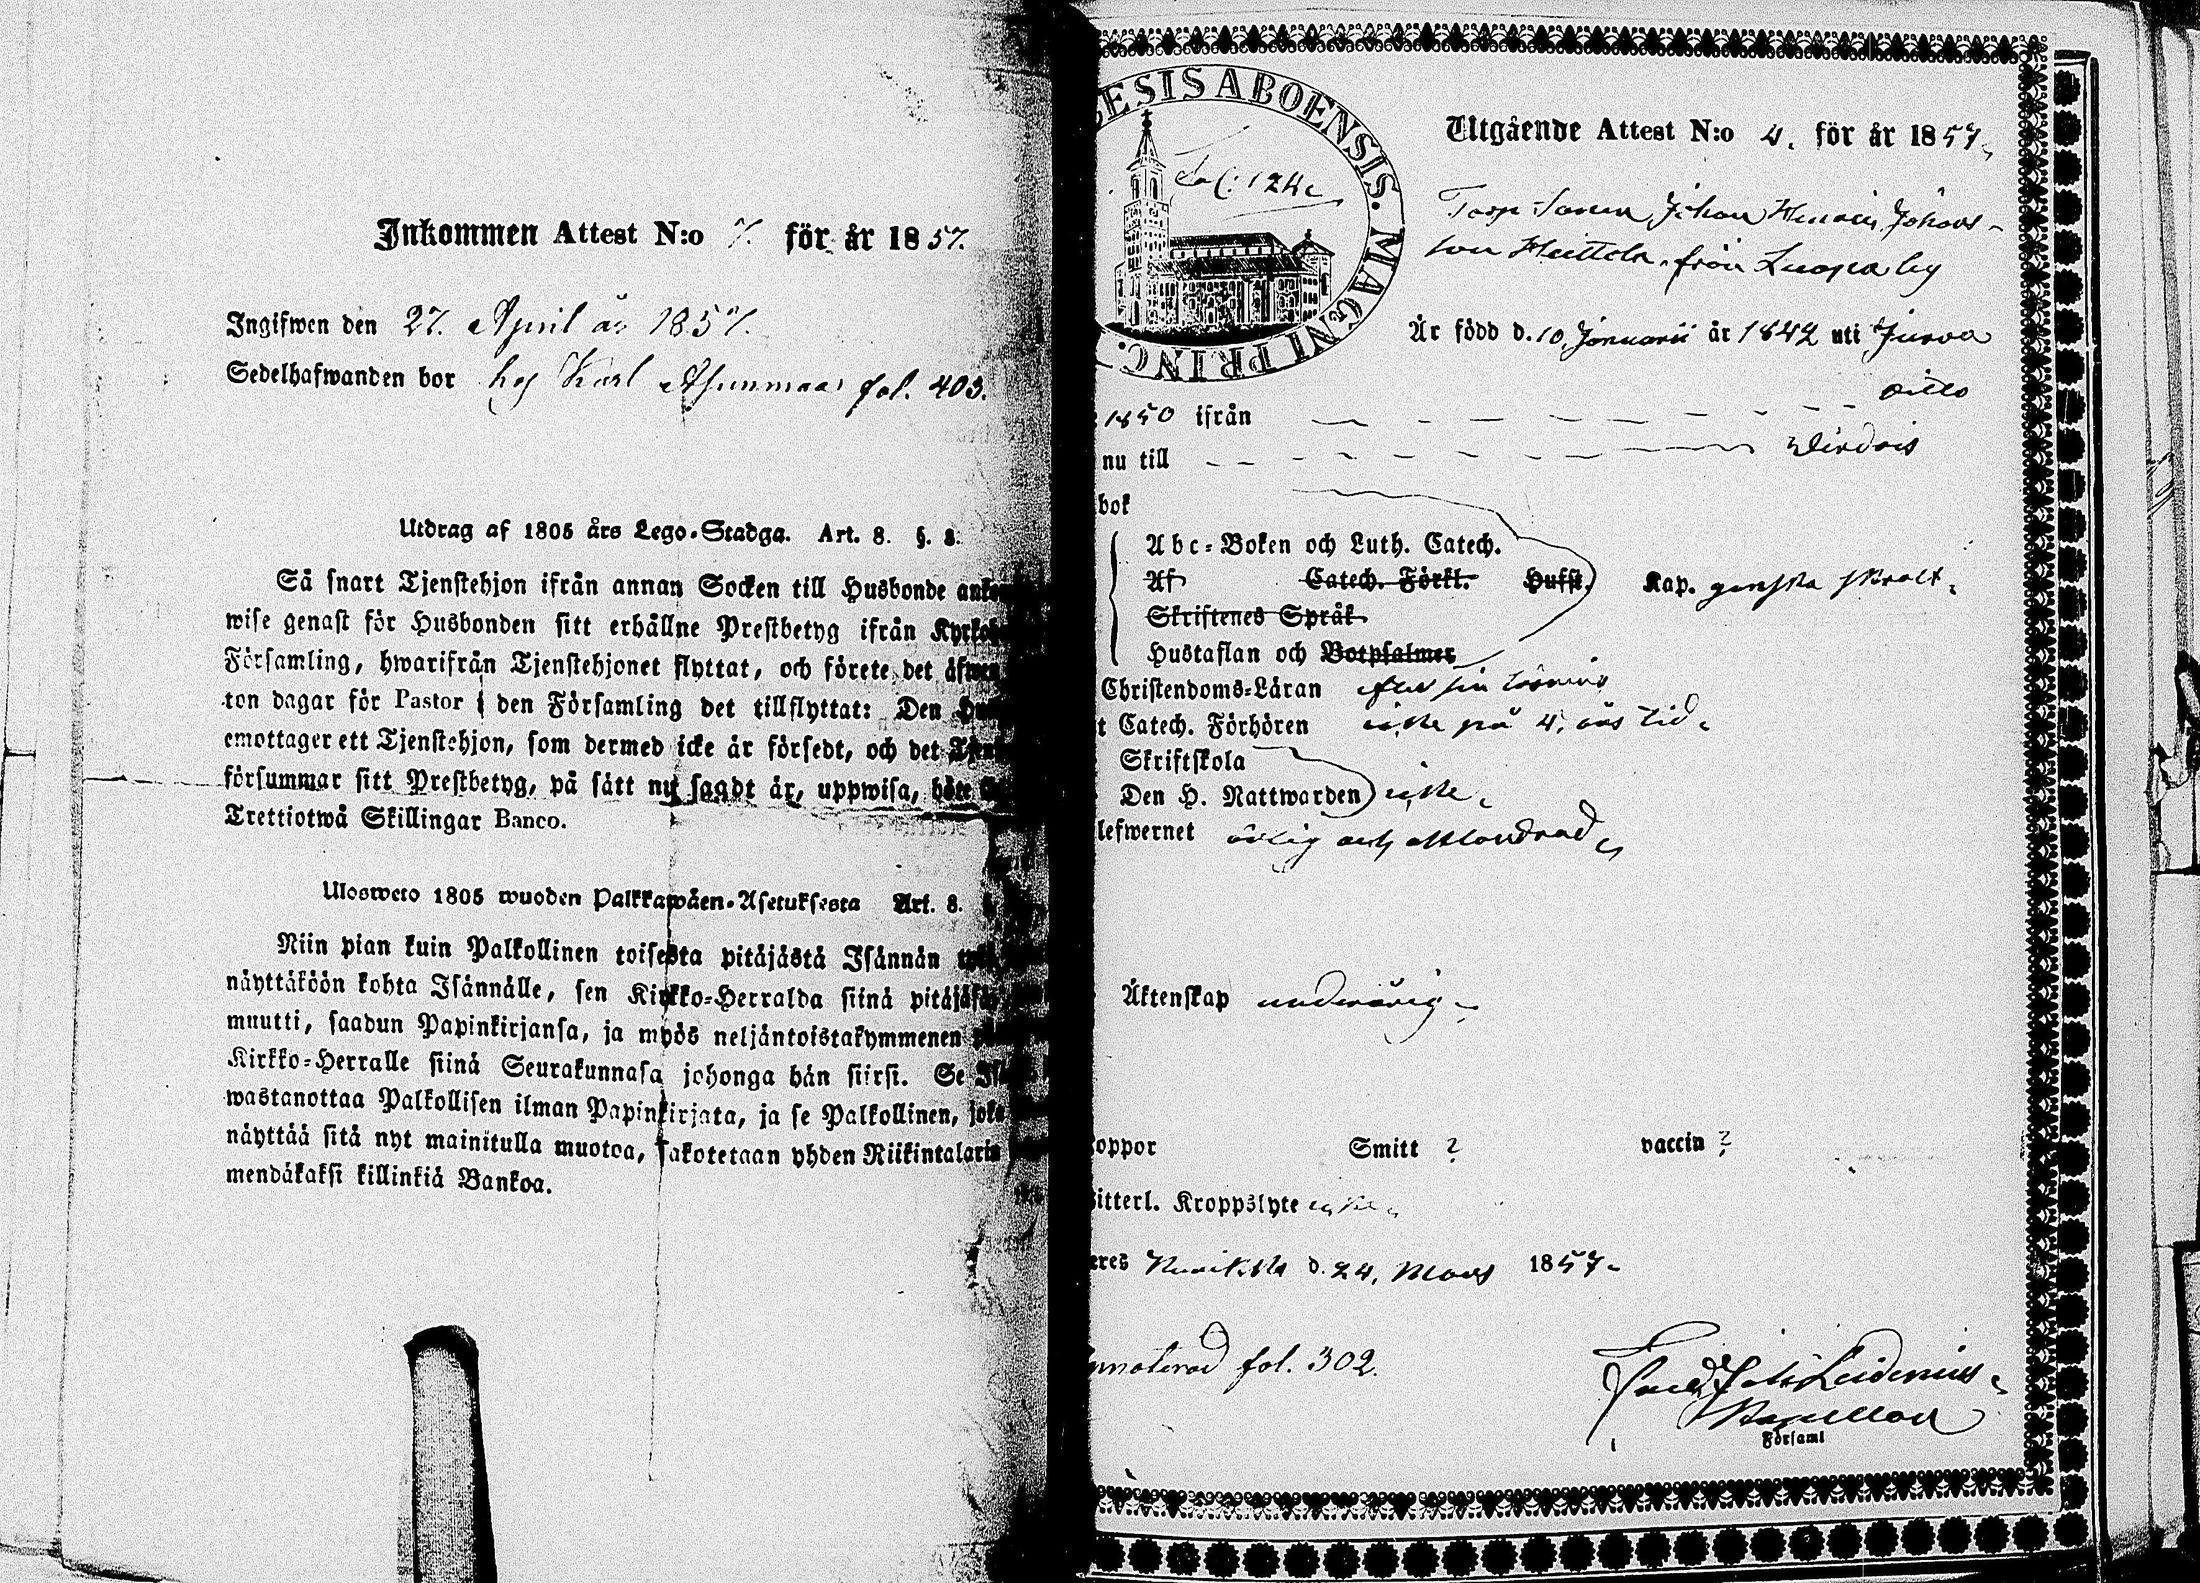 Inkommen Attest N:o 7. för år 1857.
Ingifwen den 27. April år 1857.
Sedelhafwanden bor hos Karl fol. 403.
Utdrag af 1805 års Lego-Stadga. Art. 8. §. 8.
Så snart Tjenstehjon ifrån annan Socken till Husbonde
wise genast för Husbonden sitt erhållne Prestbetyg ifrån
Församling, hwarifrån Tjenstehjonet flyttat, och förete det
ton dagar för Pastor i den Församling det tillflyttat: Den
emottager ett Tjenstehjon, som dermed icke är försedt, och det
försummar sitt Prestbetyg, på sätt nu sagdt är, uppwisa, böte
Trettiotwå Skillingar Banco.
Ulosweto 1805 wuoden Palkkawäen-Asetuksesta Art. 8.
Niin pian kuin Palkollinen toisesta pitäjästä Isännän
näyttäköön kohta Isännälle, sen Kirkko-Herralda siinä
muutti, saadun Papinkirjansa, ja myös neljäntoistakymmenen
Kirkko-Herralle siinä Seurakunnasa johonga hän siirsi. Se
wastanottaa Palkollisen ilman Papinkirjata, ja se Palkollinen, joka
näyttää sitä nyt mainitulla muotoa, sakotetaan yhden Riikintalarin
mendäkaksi killinkiä Bankoa.
ESIS ABOENSIS. MAGNI PRINC.
Fol: 124.
Utgående Attest N:o 4. för år 1857.
Torp Sonen Johan Henric Johans-
son från Luopa by
Är född d. 10 Januarii år 1842 uti Jurva
1850 ifrån ditto
nu till Wirdois
bok
Abc-Boken och Luth. Catech.
Af Catech. Förkl. Husst. Kap. ganska svalt.
Skriftenes Språk
Hustaflan och Botpsalmer
Christendoms-Läran efter sin
t Catech. Förhören icke på 4. års tid.
Skriftskola
Den H. Nattwarden icke.
lefwernet ärlig och oklandrad
Äktenskap underårig
oppor Smitt ? vaccin ?
itterl. Kroppslyte icke.
eres d. 24. Mars 1857.
nnoterad fol. 302.
Leidenius
Kapellan
Församl